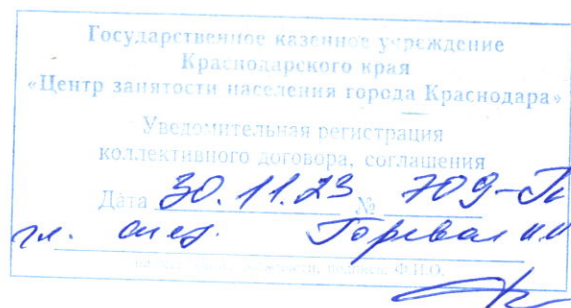 Государственное казенное учреждение
Краснодарского края
«Центр занятости населения города Краснодара»
Уведомительная регистрация
коллективного договора, соглашения
Дата 30.11.23 № 709-
гл. спец.
подпись, Ф.И.О.